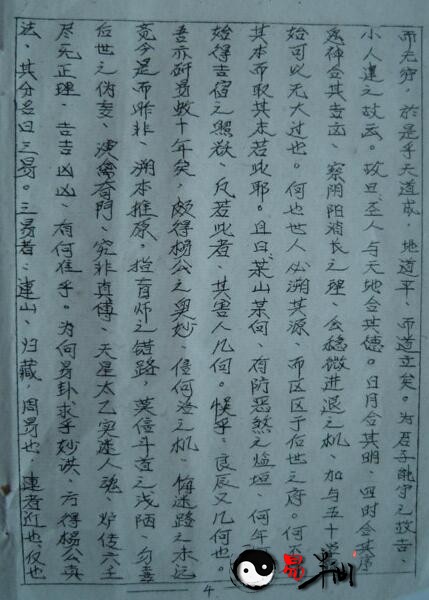 而无穷，於是乎天道成，地道平，而道立矣。为君子能守之故吉，
小人违之故凶。故曰，圣人与天地合其德。日月合其明，四时合其序
鬼神合其吉凶，察阴阳消长之理，会稳微进退之机，加与五十学
始可以无大过也。何也世人必溯其源，而区区于后世之
其本而取其末若此耶。且曰，某山某向，有防恶煞之，何年
始得吉宿之照，反若此者，其害人几何。惧乎，良辰又几何也。
吾亦研易数十年矣，颇得杨公之奥妙，之机，悔迷路之未远
觉今是而昨非，溯本推原，指盲师之错路，莫信斗首之浅陋，勿喜
后世之伪妄，演禽奇门，究非真传，天星太乙实迷人魂，炉传六壬
尽先正理，吉吉凶凶，有何准乎。为何易卦求乎妙诀，方得杨公真
法、其分名曰三易。三易者，连山、归藏、周易也，连者近也仅也
4
易 半仙